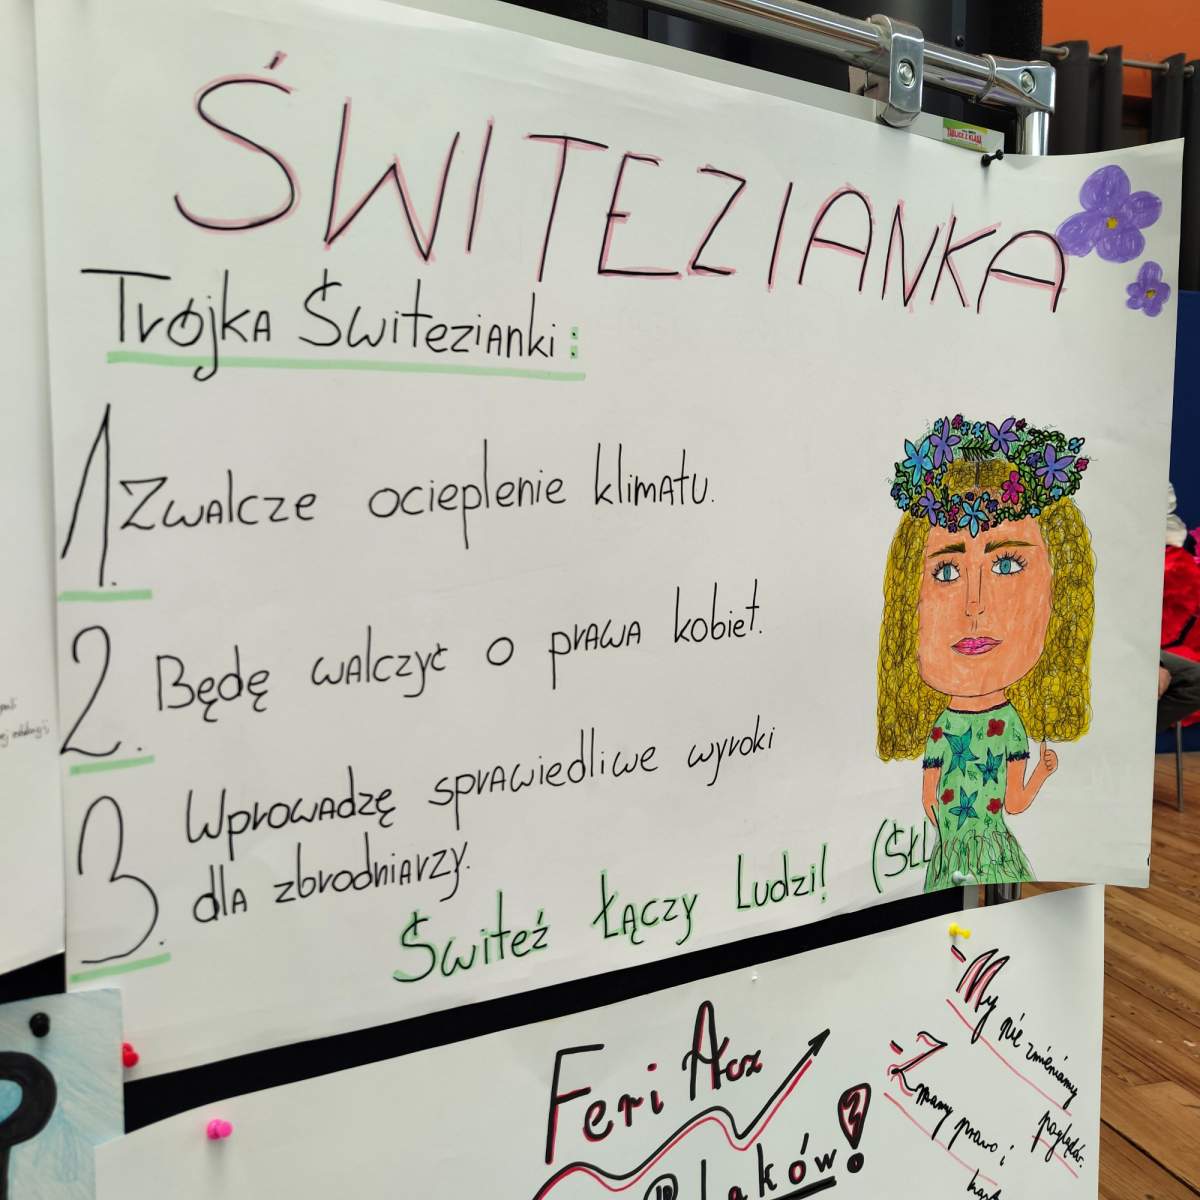 ŚWITEZIANKA
Trójka Świtezianki:
1. Zwalcze ocieplenie klimatu.
2. Będę walczyć o prawa kobiet.
3. Wprowadzę sprawiedliwe wyroki
dla zbrodniarzy.
Świteź Łączy Ludzi! (ŚŁL)
Feri Acz
My nie zmieniamy
poglądów.
mamy prawo i